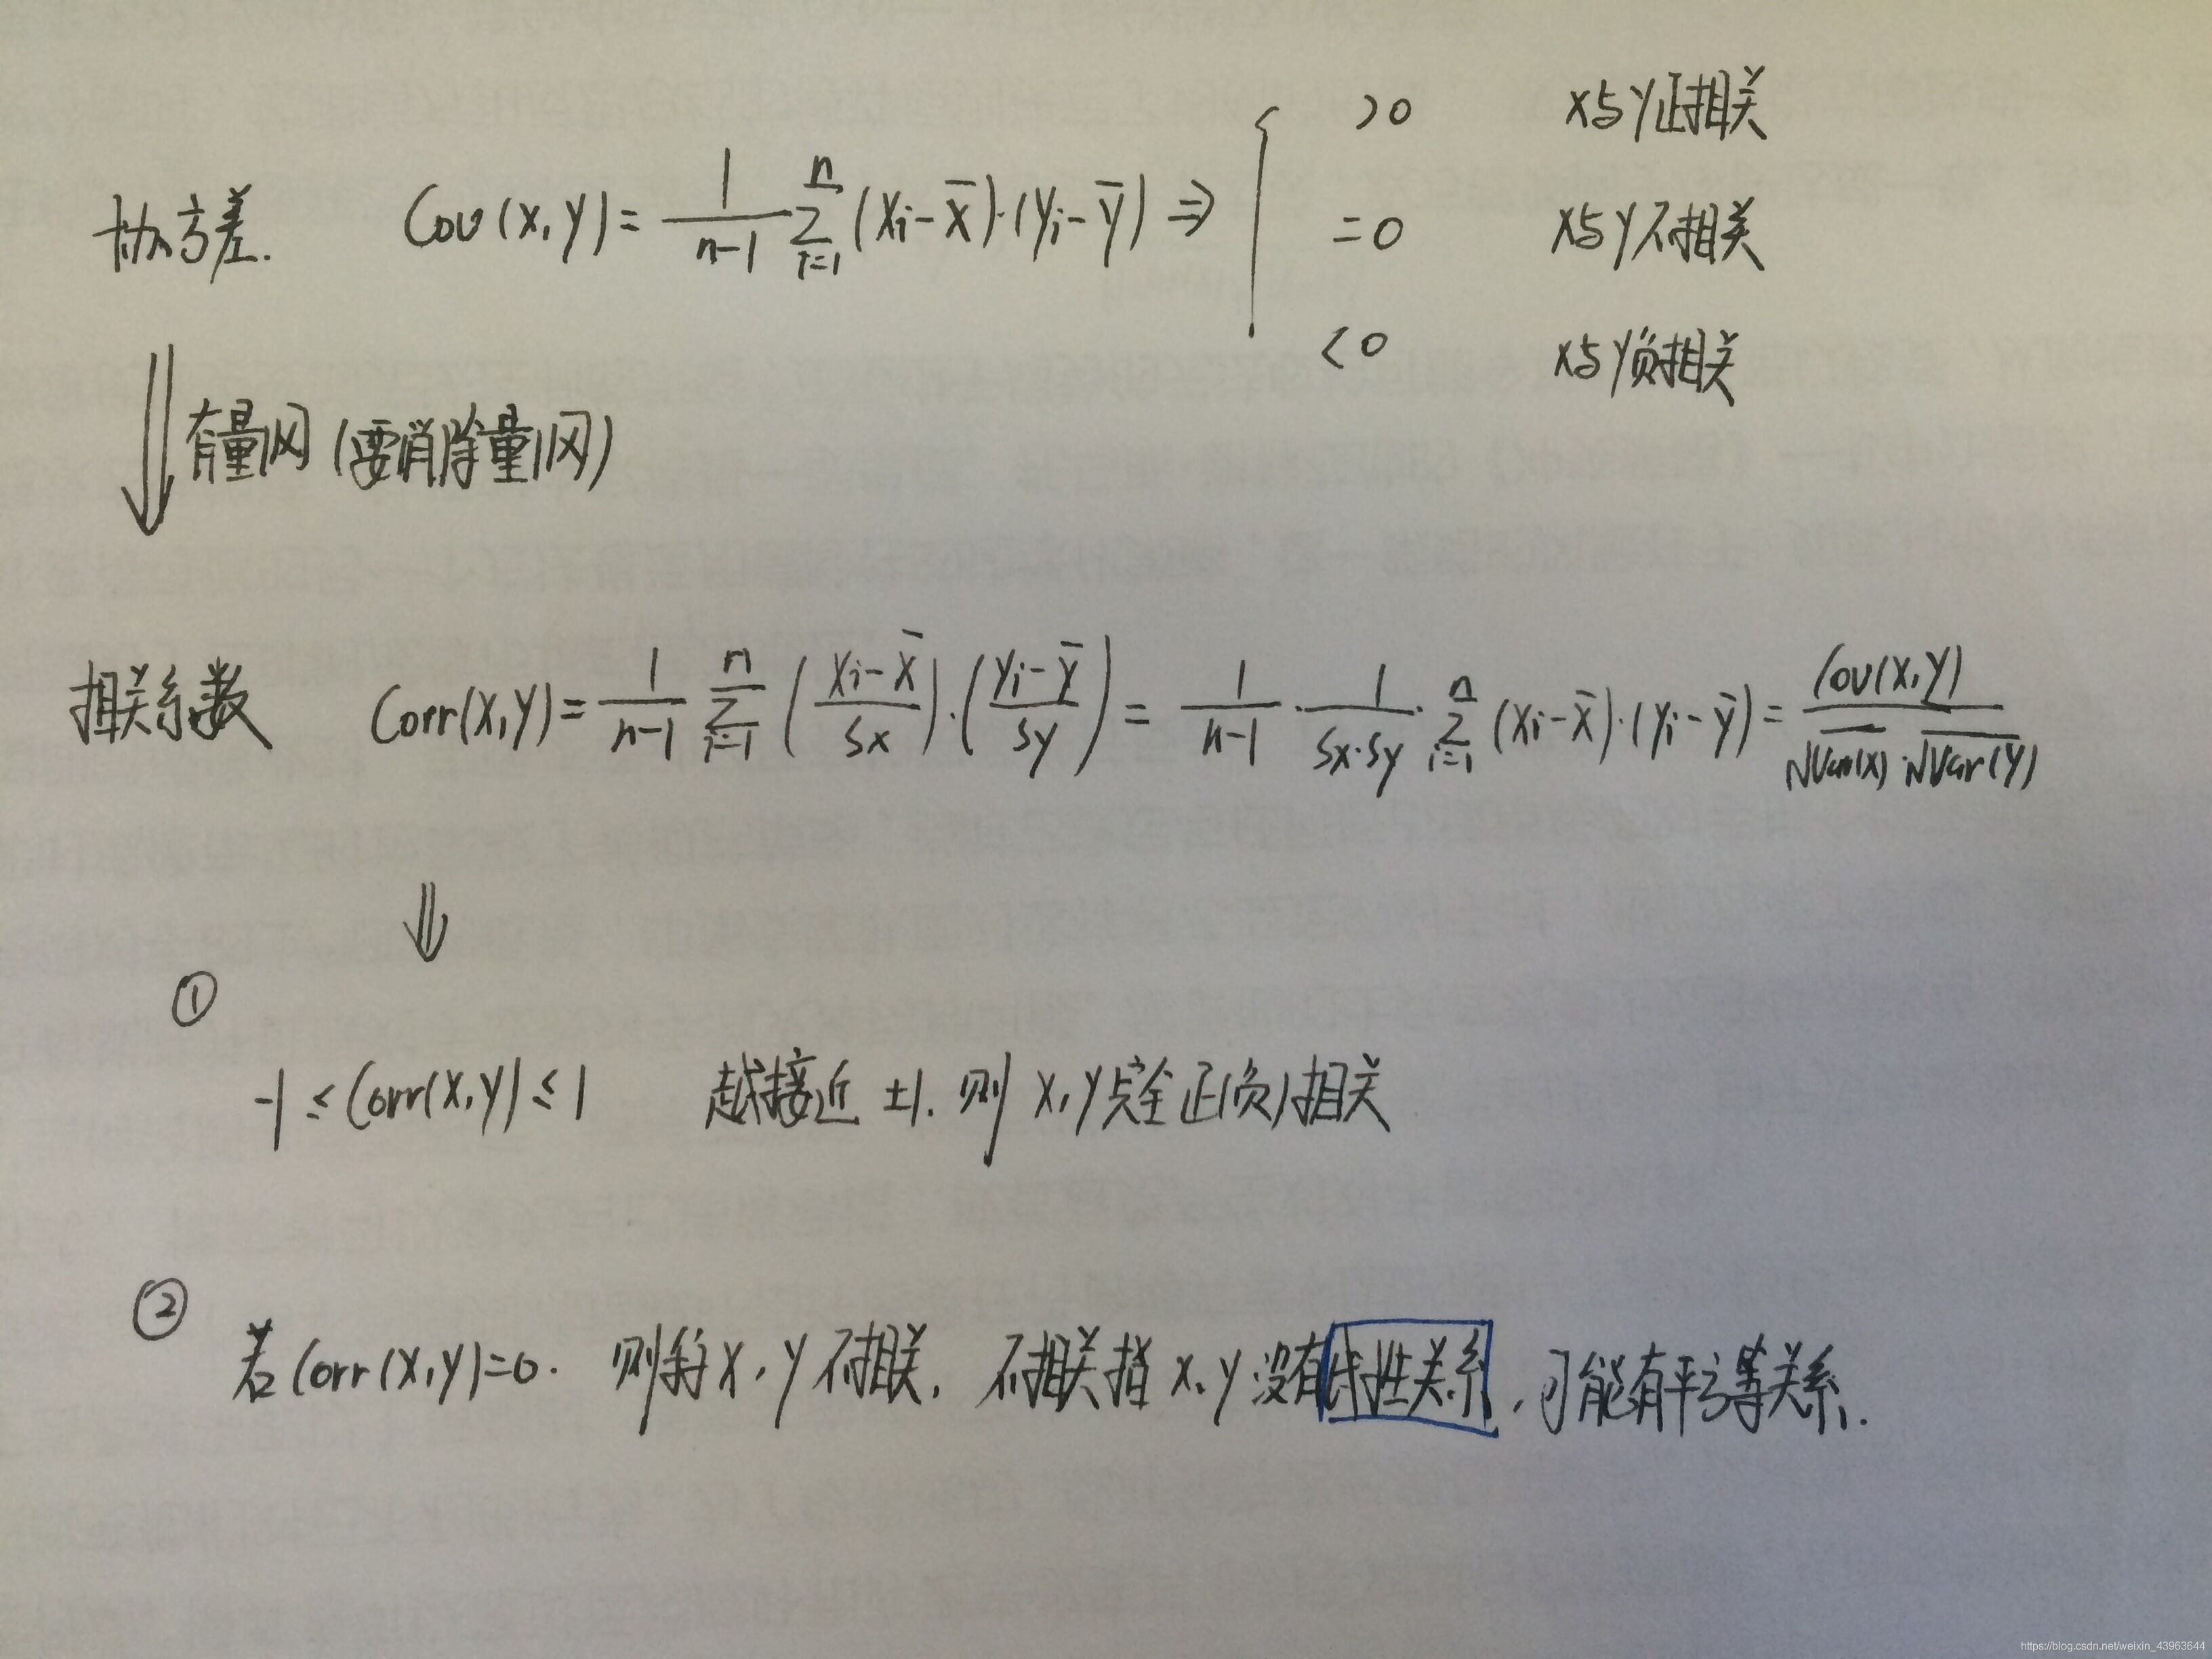 >0 x与y正相关
协方差. Cov(x,y)=\frac{1}{n-1}\sum_{i=1}^{n}(xi-\bar{x})·(yi-\bar{y}) ⇒ { =0 x与y不相关
<0 x与y负相关
有量冈(要消除量冈)
相关系数 Corr(x,y)=\frac{1}{n-1}\sum_{i=1}^{n}(\frac{xi-\bar{x}}{Sx})·(\frac{yi-\bar{y}}{Sy})=\frac{1}{n-1}·\frac{1}{Sx·Sy}·\sum_{i=1}^{n}(xi-\bar{x})·(yi-\bar{y})=\frac{Cov(x,y)}{\sqrt{Var(x)}·\sqrt{Var(y)}}
①
-1≤Corr(x,y)≤1 越接近 ±1. 则 x,y完全正(负)相关
②
若Corr(x,y)=0. 则称x,y不相关, 不相关指x,y没有线性关系,可能有平方等关系.
https://blog.csdn.net/weixin_43963644